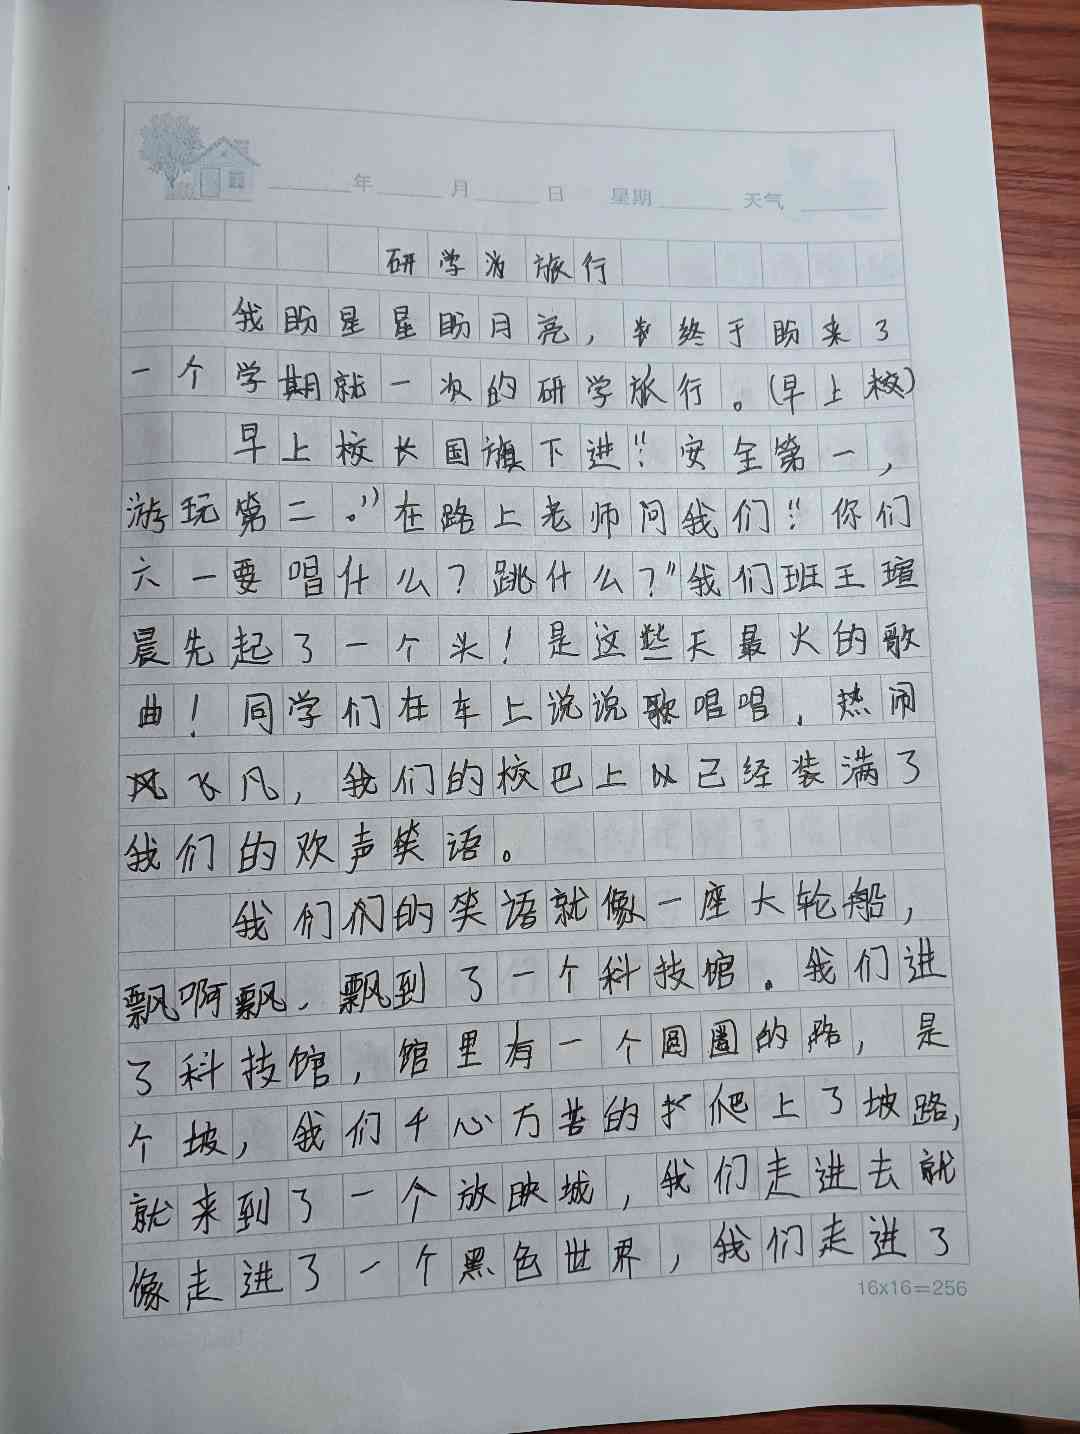 年 月 日 星期 天气
研学为旅行
我盼星星盼月亮，终于盼来了
一个学期就一次的研学旅行。(早上校)
早上校长国旗下进“安全第一，
游玩第二。”在路上老师问我们“你们
六一要唱什么？跳什么？”我们班王瑄
晨先起了一个头！是这些天最火的歌
曲！同学们在车上说说歌唱唱，热闹
飞凡，我们的校巴上以已经装满了
我们的欢声笑语。
我们们的笑语就像一座大轮船，
飘啊飘，飘到了一个科技馆。我们进
了科技馆，馆里有一个圆圈的路，是
个坡，我们千心万苦的爬上了坡路，
就来到了一个放映城，我们走进去就
像走进了一个黑色世界，我们走进了
16x16=256